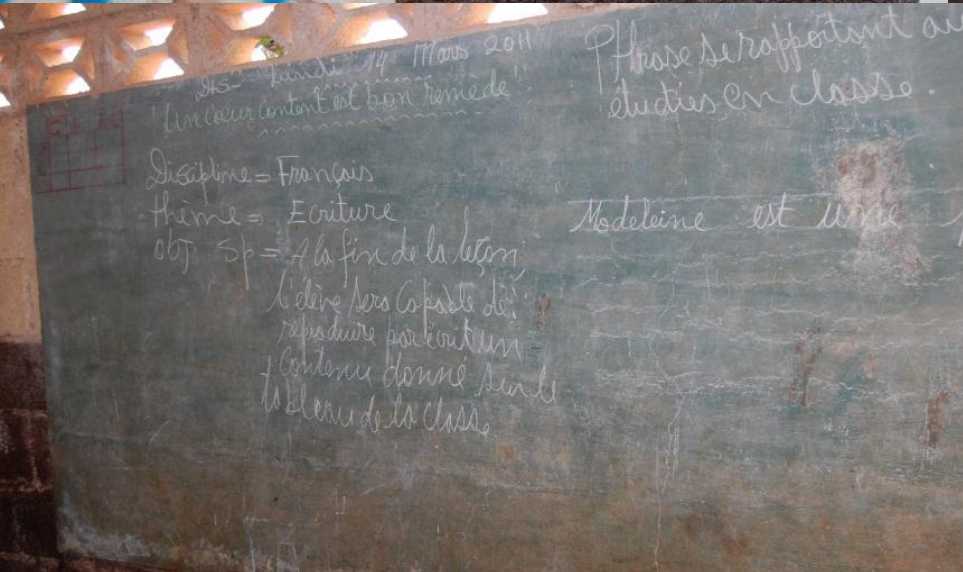 Lundi 14 Mars 2011
"Un cœur content est bon remède"
Discipline = Français
thème = Ecriture
obj. Sp = A la fin de la leçon,
l'élève sera capable de:
reproduire par écrit un
contenu donné sur le
tableau de la classe.
Phrase se rapportant au
étudiés en classe.
Madeleine est une